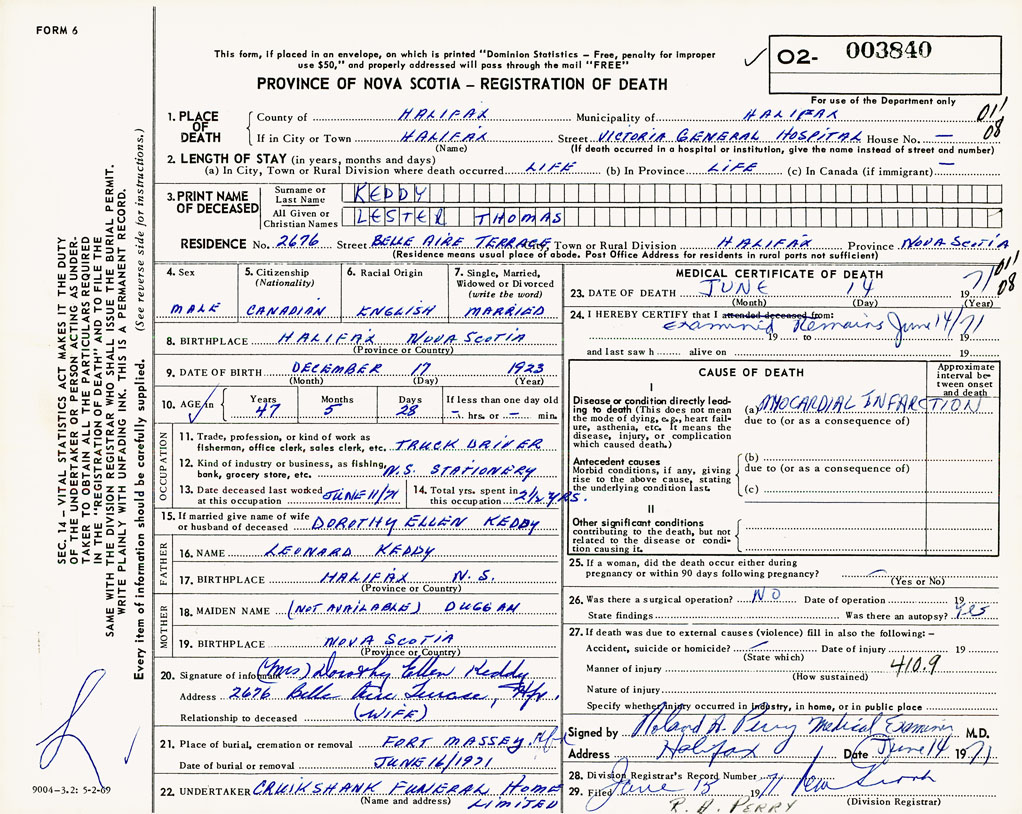 FORM 6
This form, if placed in an envelope, on which is printed "Dominion Statistics – Free, penalty for improper
use $50," and properly addressed will pass through the mail "FREE"
PROVINCE OF NOVA SCOTIA – REGISTRATION OF DEATH
✓ 02- 003840
For use of the Department only
1. PLACE OF DEATH
County of HALIFAX Municipality of HALIFAX 011
If in City or Town HALIFAX Street VICTORIA GENERAL HOSPITAL House No. — 08
(Name) (If death occurred in a hospital or institution, give the name instead of street and number)
2. LENGTH OF STAY (in years, months and days)
(a) In City, Town or Rural Division where death occurred LIFE (b) In Province LIFE (c) In Canada (if immigrant) —
3. PRINT NAME OF DECEASED
Surname or Last Name KEDDY
All Given or Christian Names LESTER THOMAS
RESIDENCE No. 2676 Street BELLE AIRE TERRACE City, Town or Rural Division HALIFAX Province NOVA SCOTIA
(Residence means usual place of abode. Post Office Address for residents in rural parts not sufficient)
011
08
SEC. 14 – VITAL STATISTICS ACT MAKES IT THE DUTY
OF THE UNDERTAKER OR PERSON ACTING AS UNDER-
TAKER TO OBTAIN ALL THE PARTICULARS REQUIRED
IN THE "REGISTRATION OF DEATH" AND TO FILE THE
SAME WITH THE DIVISION REGISTRAR WHO SHALL ISSUE THE BURIAL PERMIT.
WRITE PLAINLY WITH UNFADING INK. THIS IS A PERMANENT RECORD.
Every item of information should be carefully supplied. (See reverse side for instructions.)
4. Sex
MALE
5. Citizenship
(Nationality)
CANADIAN
6. Racial Origin
ENGLISH
7. Single, Married,
Widowed or Divorced
(write the word)
MARRIED
8. BIRTHPLACE HALIFAX NOVA SCOTIA
(Province or Country)
9. DATE OF BIRTH DECEMBER 17 1923
(Month) (Day) (Year)
10. AGE in ✓ Years 47 Months 5 Days 28 If less than one day old
— hrs. or — min.
OCCUPATION
11. Trade, profession, or kind of work as
fisherman, office clerk, sales clerk, etc. TRUCK DRIVER
12. Kind of industry or business, as fishing,
bank, grocery store, etc. N.S. STATIONERY
13. Date deceased last worked
at this occupation JUNE 11/71
14. Total yrs. spent in
this occupation 2 1/2 YRS.
15. If married give name of wife
or husband of deceased DOROTHY ELLEN KEDDY
FATHER
16. NAME LEONARD KEDDY
17. BIRTHPLACE HALIFAX N.S.
(Province or Country)
MOTHER
18. MAIDEN NAME (NOT AVAILABLE) DUGGAN
19. BIRTHPLACE NOVA SCOTIA
(Province or Country)
20. Signature of informant (Mrs) Dorothy Ellen Keddy
Address 2676 Belle Aire Terrace, Hfx.
Relationship to deceased (WIFE)
21. Place of burial, cremation or removal FORT MASSEY,
Date of burial or removal JUNE 16/1971
22. UNDERTAKER CRUIKSHANK FUNERAL HOME
(Name and address) LIMITED
9004–3.2: 5-2-69
MEDICAL CERTIFICATE OF DEATH
23. DATE OF DEATH JUNE 14 1971
(Month) (Day) (Year)
24. I HEREBY CERTIFY that I attended deceased from:
Examined Remains June 14/71
19 to 19
and last saw h alive on 19
CAUSE OF DEATH
Approximate
interval be-
tween onset
and death
I
Disease or condition directly lead-
ing to death (This does not mean
the mode of dying, e.g., heart fail-
ure, asthenia, etc. It means the
disease, injury, or complication
which caused death.)
(a) MYOCARDIAL INFARCTION
due to (or as a consequence of)
Antecedent causes
Morbid conditions, if any, giving
rise to the above cause, stating
the underlying condition last.
(b)
due to (or as a consequence of)
(c)
II
Other significant conditions
contributing to the death, but not
related to the disease or condi-
tion causing it.
25. If a woman, did the death occur either during
pregnancy or within 90 days following pregnancy? —
(Yes or No)
26. Was there a surgical operation? NO Date of operation 19
State findings Was there an autopsy? Yes
27. If death was due to external causes (violence) fill in also the following: –
Accident, suicide or homicide? — Date of injury 19
(State which)
Manner of injury 410.9
(How sustained)
Nature of injury
Specify whether injury occurred in industry, in home, or in public place
Signed by Roland A. Perry Medical Examiner M.D.
Address Halifax Date June 14 1971
28. Division Registrar's Record Number
29. Filed June 15 1971
(Division Registrar)
R. A. PERRY